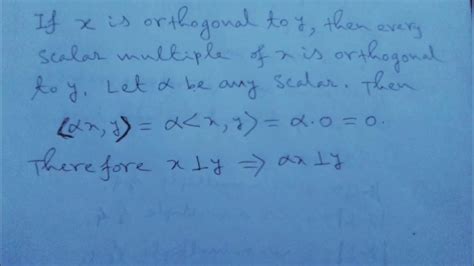 If x is orthogonal to y, then every
scalar multiple of x is orthogonal
to y. Let α be any scalar. Then
(αx, y) = α<x, y> = α.0 = 0.
Therefore x⊥y ⇒ αx⊥y